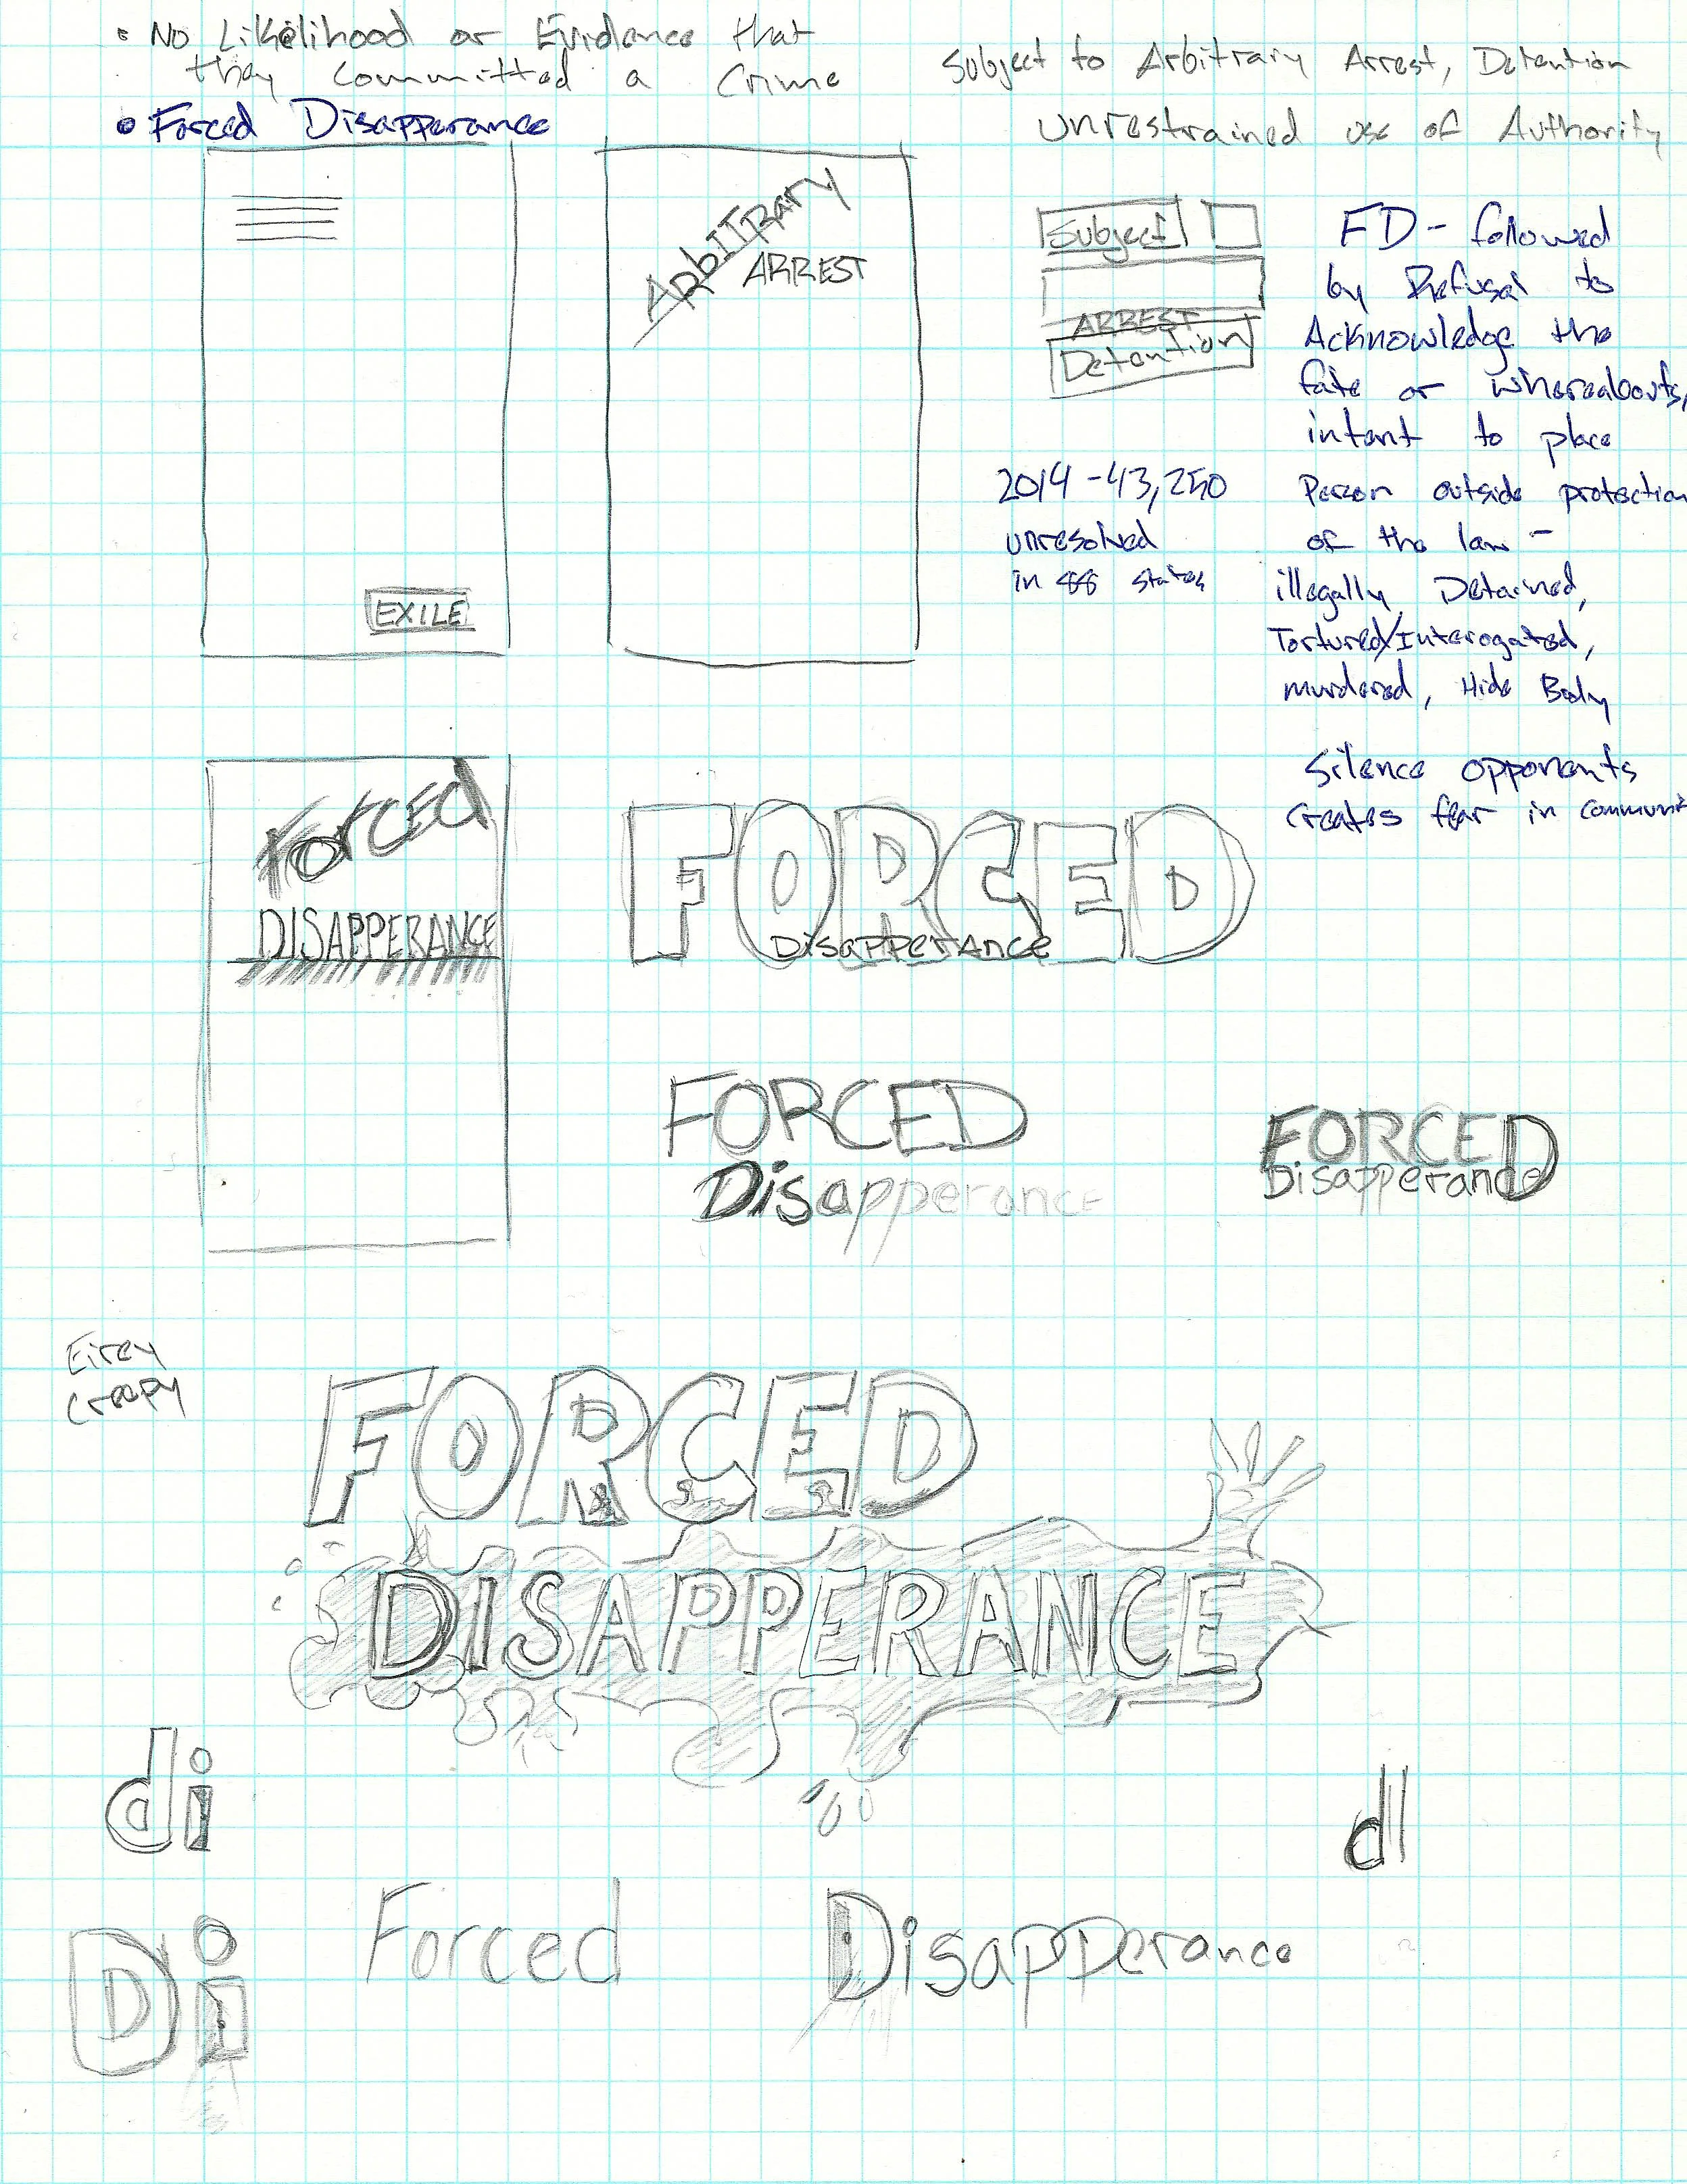 • No Likelihood or Evidence that
they committed a Crime
• Forced Disapperance
Subject to Arbitrary Arrest, Detention
unrestrained use of Authority
EXILE
ArbiTRARY
ARREST
Subject
ARREST
Detention
FD - followed
by Refusal to
Acknowledge the
fate or whereabouts,
intent to place
Person outside protection
of the law -
illegally Detained,
Tortured/Interogated,
murdered, Hide Body
2014 - 43,250
unresolved
in 88 states
Silence opponents
Creates fear in communi
ForCEd
DISAPPERANCE
FORCED
Disapperance
FORCED
Disapperance
FORCED
Disapperance
Eirey
Creepy
FORCED
DISAPPERANCE
di
dl
Di
Forced Disapperance